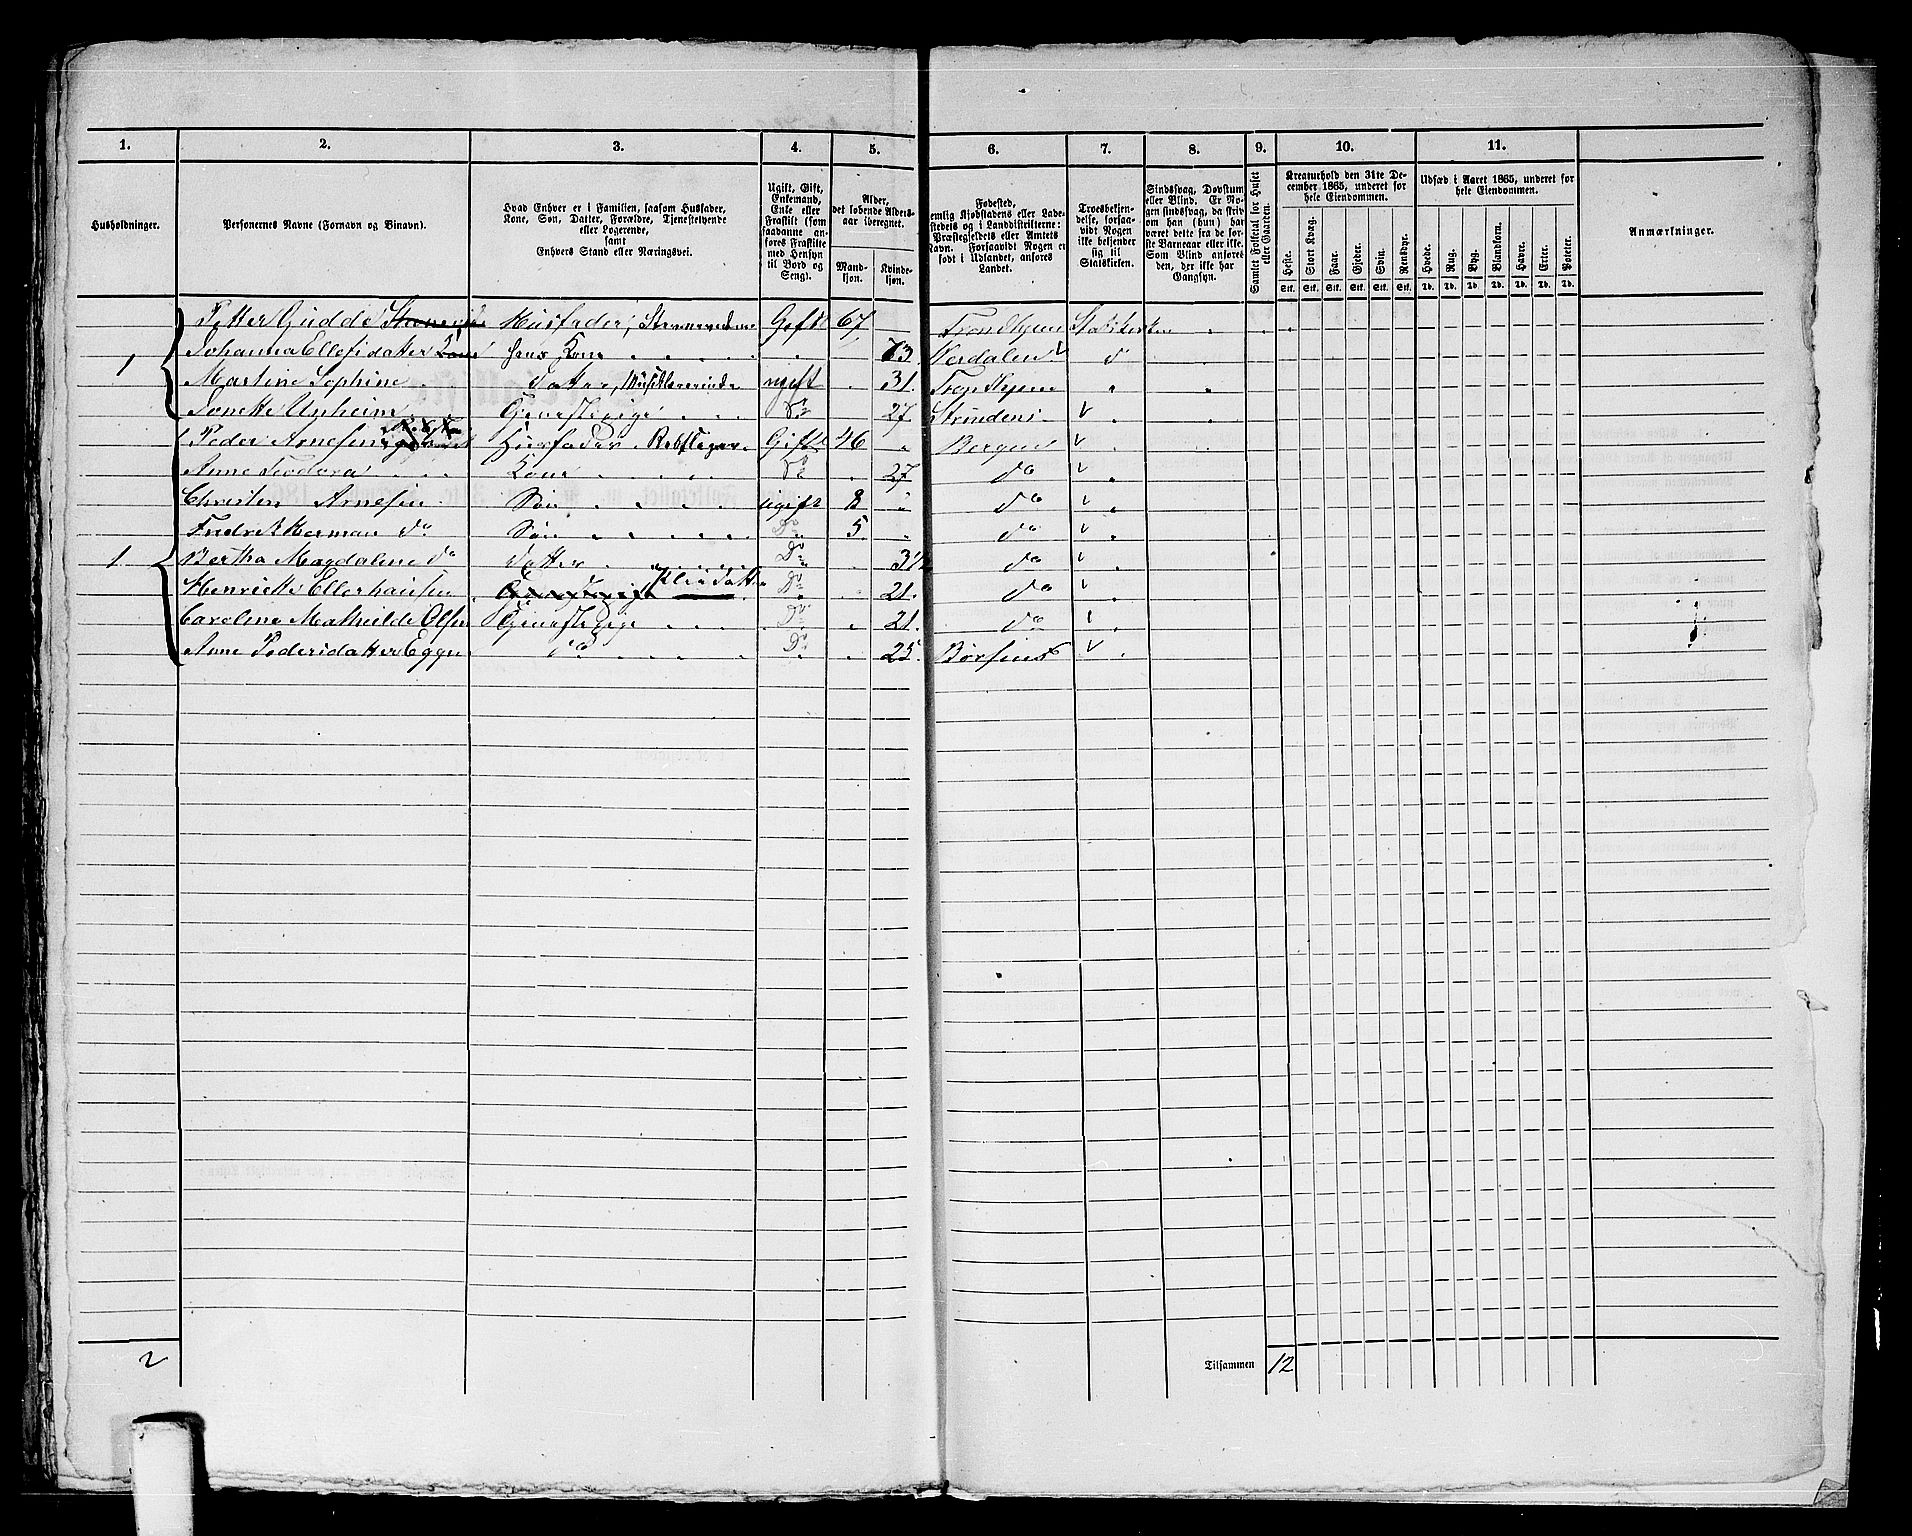 1. 2. 3. 4. 5. 6. 7. 8. 9. 10. 11.
Husholdninger.
Personernes Navne (Fornavn og Binavn).
Hvad Enhver er i Familien, saasom Husfader,
Kone, Søn, Datter, Forældre, Tjenstetyende
eller Logerende,
samt
Enhvers Stand eller Næringsvei.
Ugift, Gift,
Enkemand,
Enke eller
Fraskilt (som
saadanne an-
føres Fraskilte
med Hensyn
til Bord og
Seng).
Alder,
det løbende Alders-
aar iberegnet.
Mand-
kjøn.
Kvinde-
kjøn.
Fødested,
nemlig Kjøbstadens eller Lade-
stedets og i Landdistrikterne:
Præstegjeldets eller Amtets
Navn. Forsaavidt Nogen er
født i Udlandet, anføres
Landet.
Troesbekjen-
delse, forsaa-
vidt Nogen
ikke bekjender
sig til
Statskirken.
Sindssvag, Døvstum
eller Blind. Er No-
gen sindssvag, da skriv
om han (hun) har
været dette fra de før-
ste Barneaar eller ikke.
Som Blind anføres
den, der ikke har
Gangsyn.
Samlet Folketal for Huset
eller Gaarden.
Kreaturhold den 31te De-
cember 1865, underet for
hele Eiendommen.
Heste. Stort Kvæg. Faar. Gjeder. Svin. Rensdyr.
Stk. Stk. Stk. Stk. Stk. Stk.
Udsæd i Aaret 1865, underet for
hele Eiendommen.
Hvede. Rug. Byg. Blandkorn. Havre. Erter. Poteter.
Td. Td. Td. Td. Td. Td. Td.
Anmærkninger.
Petter Gudde Husfader, Gift 67 Trondhjem Statskirken
1 Johanna Ellefsdatter Kone hans Kone 73 Værdalen do
Martine Sophine Datter, Musiklærerinde ugift 31 Trondhjem
Jonette Unheim Tjenestepige Do 27 Strinden
Peder Arnesen Husfader Rebslager Gift 46 Bergen
Anne Teodora Kone Do 27 do
Christen Arnesen Søn ugift 8 do
Fredrik Herman do Søn Do 5 do
1 Bertha Magdalene do Datter Do 3 1/2 do
Henriette Ellerhausen Pleiedatter Do 21 do
Caroline Mathilde Olsen Tjenestepige Do 21 do
Anne Pedersdatter Eggen do Do 25 Børsen
2 Tilsammen 12